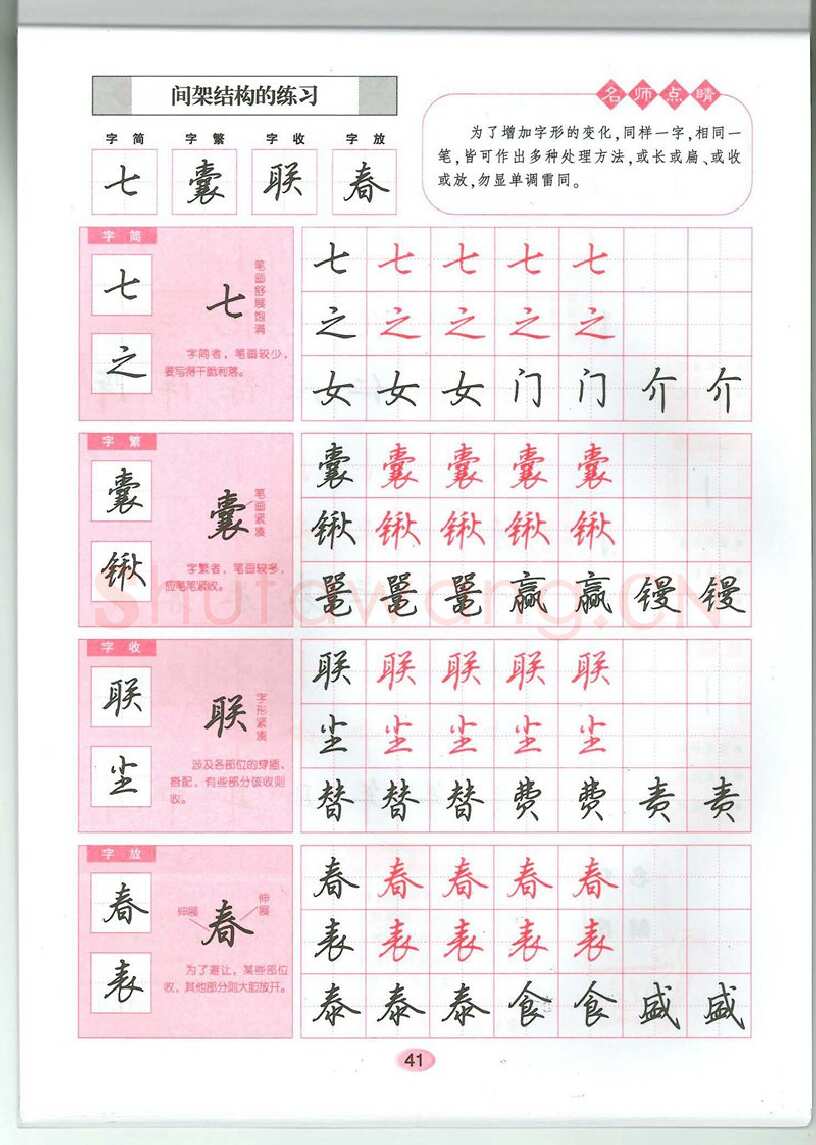 间架结构的练习
名师点睛
为了增加字形的变化,同样一字,相同一
笔,皆可作出多种处理方法,或长或扁、或收
或放,勿显单调雷同。
字简 字繁 字收 字放
七 囊 联 春
字简
七
之
七
笔画舒展饱满
字简者,笔画较少,
要写得干脆利落。
七 七 七 七 七
之 之 之 之 之
女 女 女 门 门 介 介
字繁
囊
锹
囊
笔画紧凑
字繁者,笔画较多,
应笔笔紧收。
囊 囊 囊 囊 囊
锹 锹 锹 锹 锹
鼍 鼍 鼍 赢 赢 镘 镘
字收
联
尘
联
字形紧凑
涉及各部位的穿插、
搭配,有些部分该收则
收。
联 联 联 联 联
尘 尘 尘 尘 尘
替 替 替 费 费 责 责
字放
春
表
伸展
春
伸展
为了避让,某些部位
收,其他部分则大胆放开。
春 春 春 春 春
表 表 表 表 表
泰 泰 泰 食 食 盛 盛
Shufawang.CN
41